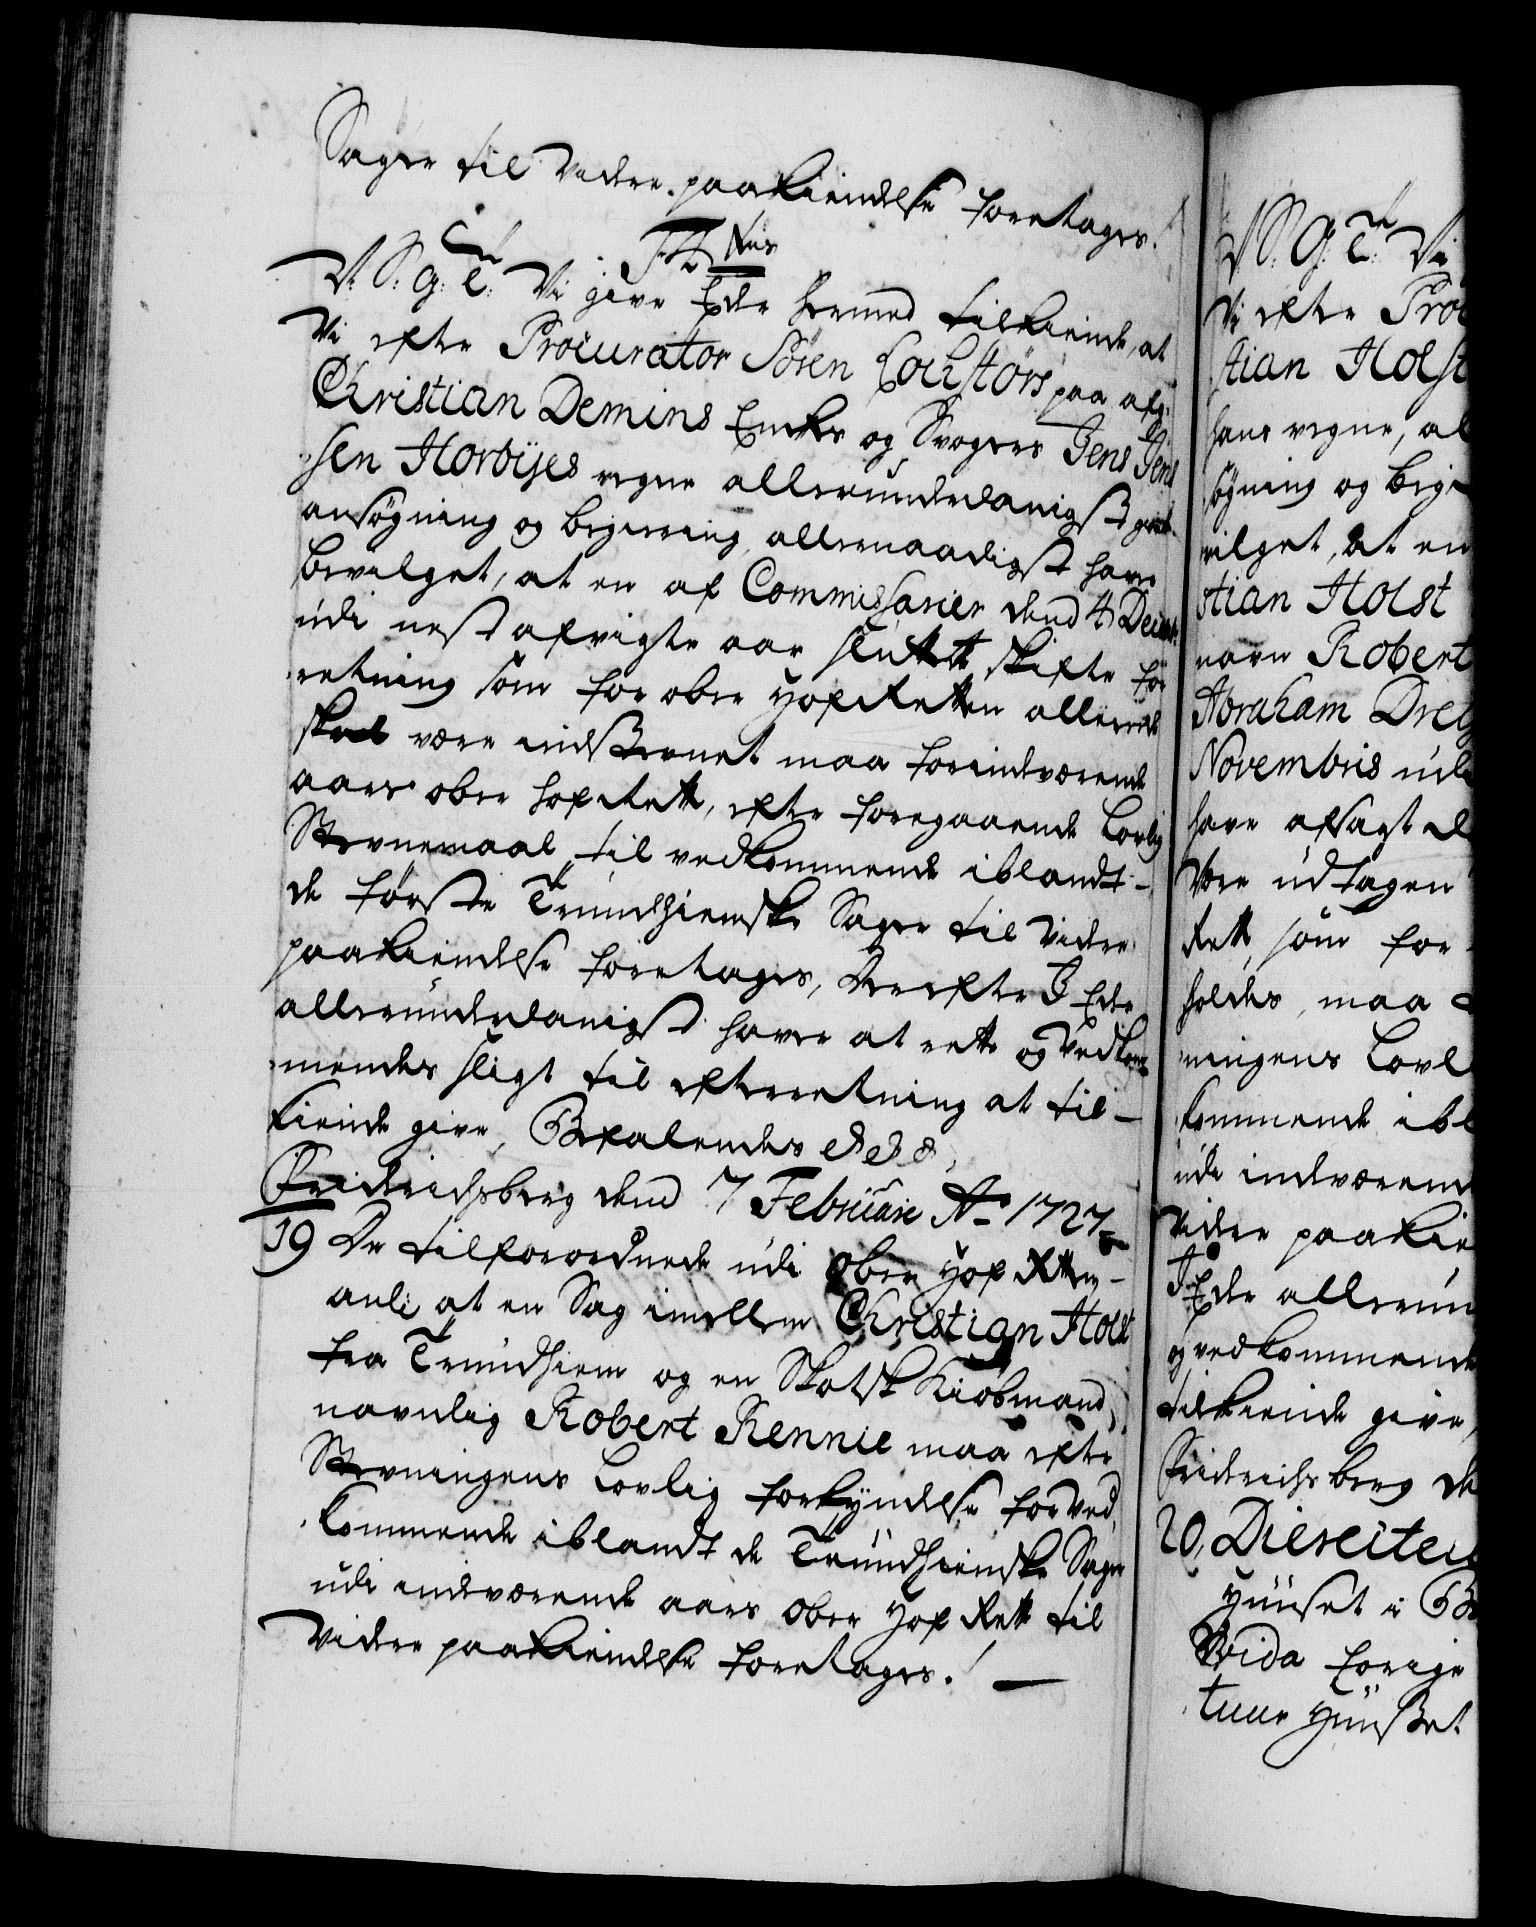 Sager til videre paakiendelse foretages.
F 4 tus
V. S. G. T. Vi give Eder hermed tilkiende, at
Vi efter Procurator Sören Lochstörs paa afg.
Christian Demins Enches og Svogers Jens Jen-
sen Horbÿes vegne allerunderdanigst giorte
ansøgning og begiering, allernaadigst have
bevilget, at en af Commissarier dend 4 Decemb.
udi nest afvigte aar sluttet skifte for-
retning som for ober Hof Retten allereede
skal være indstevnet maa forindværende
aars ober hof Rett, efter foregaaende Lovlig
Stevnemaal til vedkommende iblandt
de første Trundhiemske Sager til videre
paakiendelse foretages, Derefter I Eder
allerunderdanigst haver at rette og vedkom-
mendes sligt til efterretning at til-
kiende give, Befalendes &c&c&
Friderichsberg dend 7 Februarii Ao 1727
19 De tilforordnede udi Ober Hof Retten
anl: at en Sag imellem Christian Holst
fra Trundhiem og en Skotsk Kiøbmand,
navnlig Robert Rennie maa efter
Stevningens Lovlig forkyndelse for ved-
kommende iblandt de Trundhiemske Sager
udi indværende aars Ober Hof Rett til
videre paakiendelse foretages.
V S. G. T. Vi
Vi efter Proc
stian Holst
hans vegne, al
søgning og begi
vilget, at en
stian Holst
navn Robert
Abraham Drey
Novembris udi
have afsagt d
være udtagen
Rett, som for
holdes, maa
ningens Lovl
kommende ibl
udi indværend
videre paakie
I Eder allerun
og vedkommende
tilkiende give,
Friderichsberg de
20, Dieseiten
Huuset i B
Wida forige
tuur Huuset